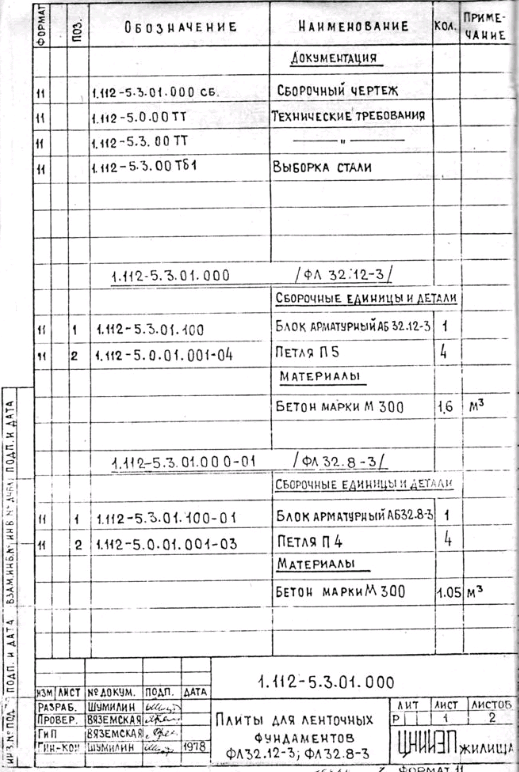 ФОРМАТ ПОЗ. ОБОЗНАЧЕНИЕ НАИМЕНОВАНИЕ КОЛ. ПРИМЕ-
ЧАНИЕ
ДОКУМЕНТАЦИЯ
11 1.112-5.3.01.000 СБ. СБОРОЧНЫЙ ЧЕРТЕЖ
11 1.112-5.0.00 ТТ ТЕХНИЧЕСКИЕ ТРЕБОВАНИЯ
11 1.112-5.3.00 ТТ — " —
11 1.112-5.3.00 ТБ1 ВЫБОРКА СТАЛИ
1.112-5.3.01.000 /ФЛ 32.12-3/
СБОРОЧНЫЕ ЕДИНИЦЫ И ДЕТАЛИ
11 1 1.112-5.3.01.100 БЛОК АРМАТУРНЫЙ АБ 32.12-3 1
11 2 1.112-5.0.01.001-04 ПЕТЛЯ П5 4
МАТЕРИАЛЫ
БЕТОН МАРКИ М 300 1,6 М³
1.112-5.3.01.000-01 /ФЛ 32.8-3/
СБОРОЧНЫЕ ЕДИНИЦЫ И ДЕТАЛИ
11 1 1.112-5.3.01.100-01 БЛОК АРМАТУРНЫЙ АБ32.8-3 1
11 2 1.112-5.0.01.001-03 ПЕТЛЯ П4 4
МАТЕРИАЛЫ
БЕТОН МАРКИ М 300 1.05 М³
ПОДП. И ДАТА
ВЗАМ.ИНВ.№
ПОДП. И ДАТА
1.112-5.3.01.000
ИЗМ ЛИСТ № ДОКУМ. ПОДП. ДАТА
РАЗРАБ. ШУМИЛИН
ПРОВЕР. ВЯЗЕМСКАЯ
ГИП ВЯЗЕМСКАЯ
ШУМИЛИН 1978
ПЛИТЫ ДЛЯ ЛЕНТОЧНЫХ
ФУНДАМЕНТОВ
ФЛ32.12-3; ФЛ32.8-3
ЛИТ ЛИСТ ЛИСТОВ
Р 1 2
ЦНИИЭП ЖИЛИЩА
ФОРМАТ 11